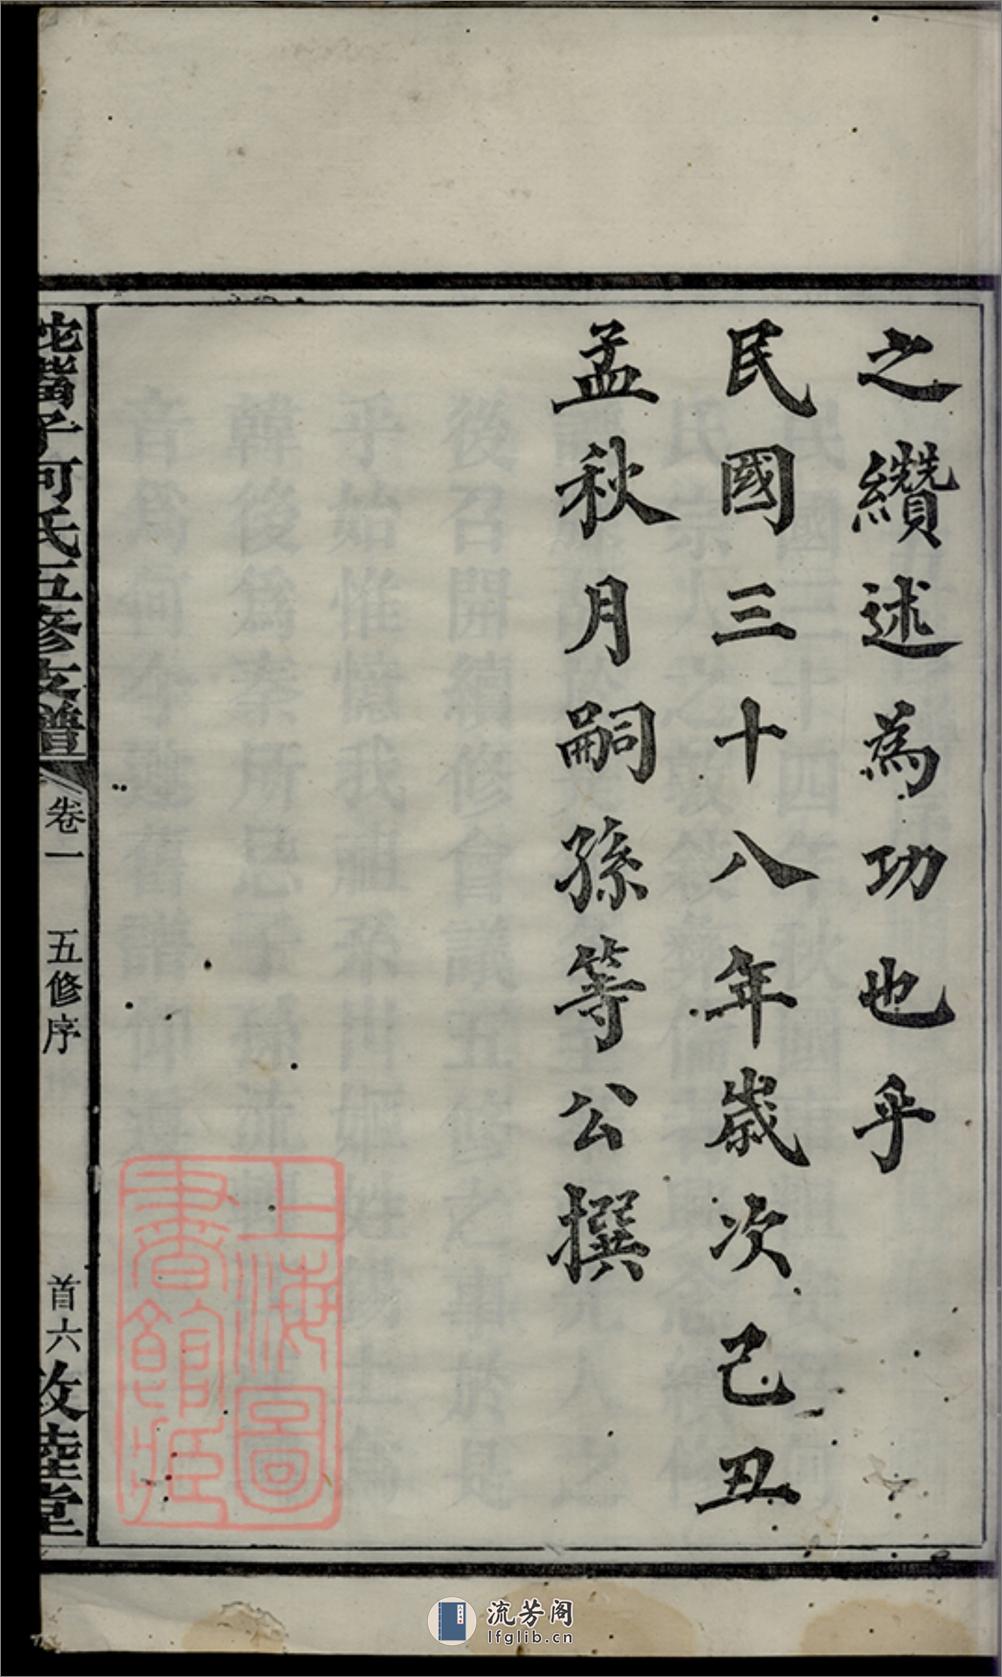 之纘述為功也乎
民國三十八年歲次己丑
孟秋月嗣孫等公撰
子河氏五修支譜
卷一
五修序
首六
敦睦堂
上海圖
書館藏
流芳阁
lfglib.cn